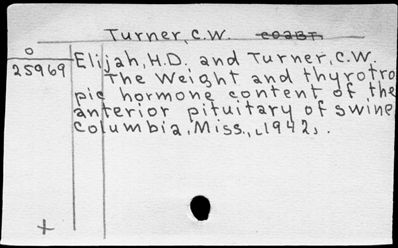 Turner, C.W. coabt
O
25969
Elijah, H.D. and Turner, C.W.
The Weight and thyrotro
pic hormone content of the
anterior pituitary of swine
Columbia, Miss., [1942].
+